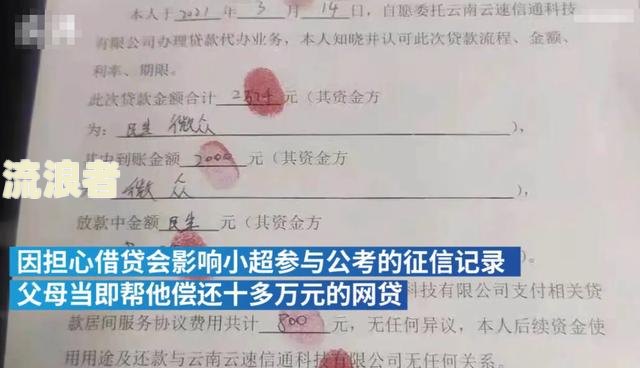 本人于2021年3月14日，自愿委托云南云速信通科技
有限公司办理贷款代办业务，本人知晓并认可此次贷款流程、金额、
利率、期限。
此次贷款金额合计 元（其资金方
为：民生 微众 ），
其中到账金额 2000 元（其资金方
微众 ），
放款中金额 民生 元（其资金方
流浪者
因担心借贷会影响小超参与公考的征信记录
父母当即帮他偿还十多万元的网贷
科技有限公司支付相关贷
款居间服务协议费用共计 800 元，无任何异议，本人后续资金使
用用途及还款与云南云速信通科技有限公司无任何关系。